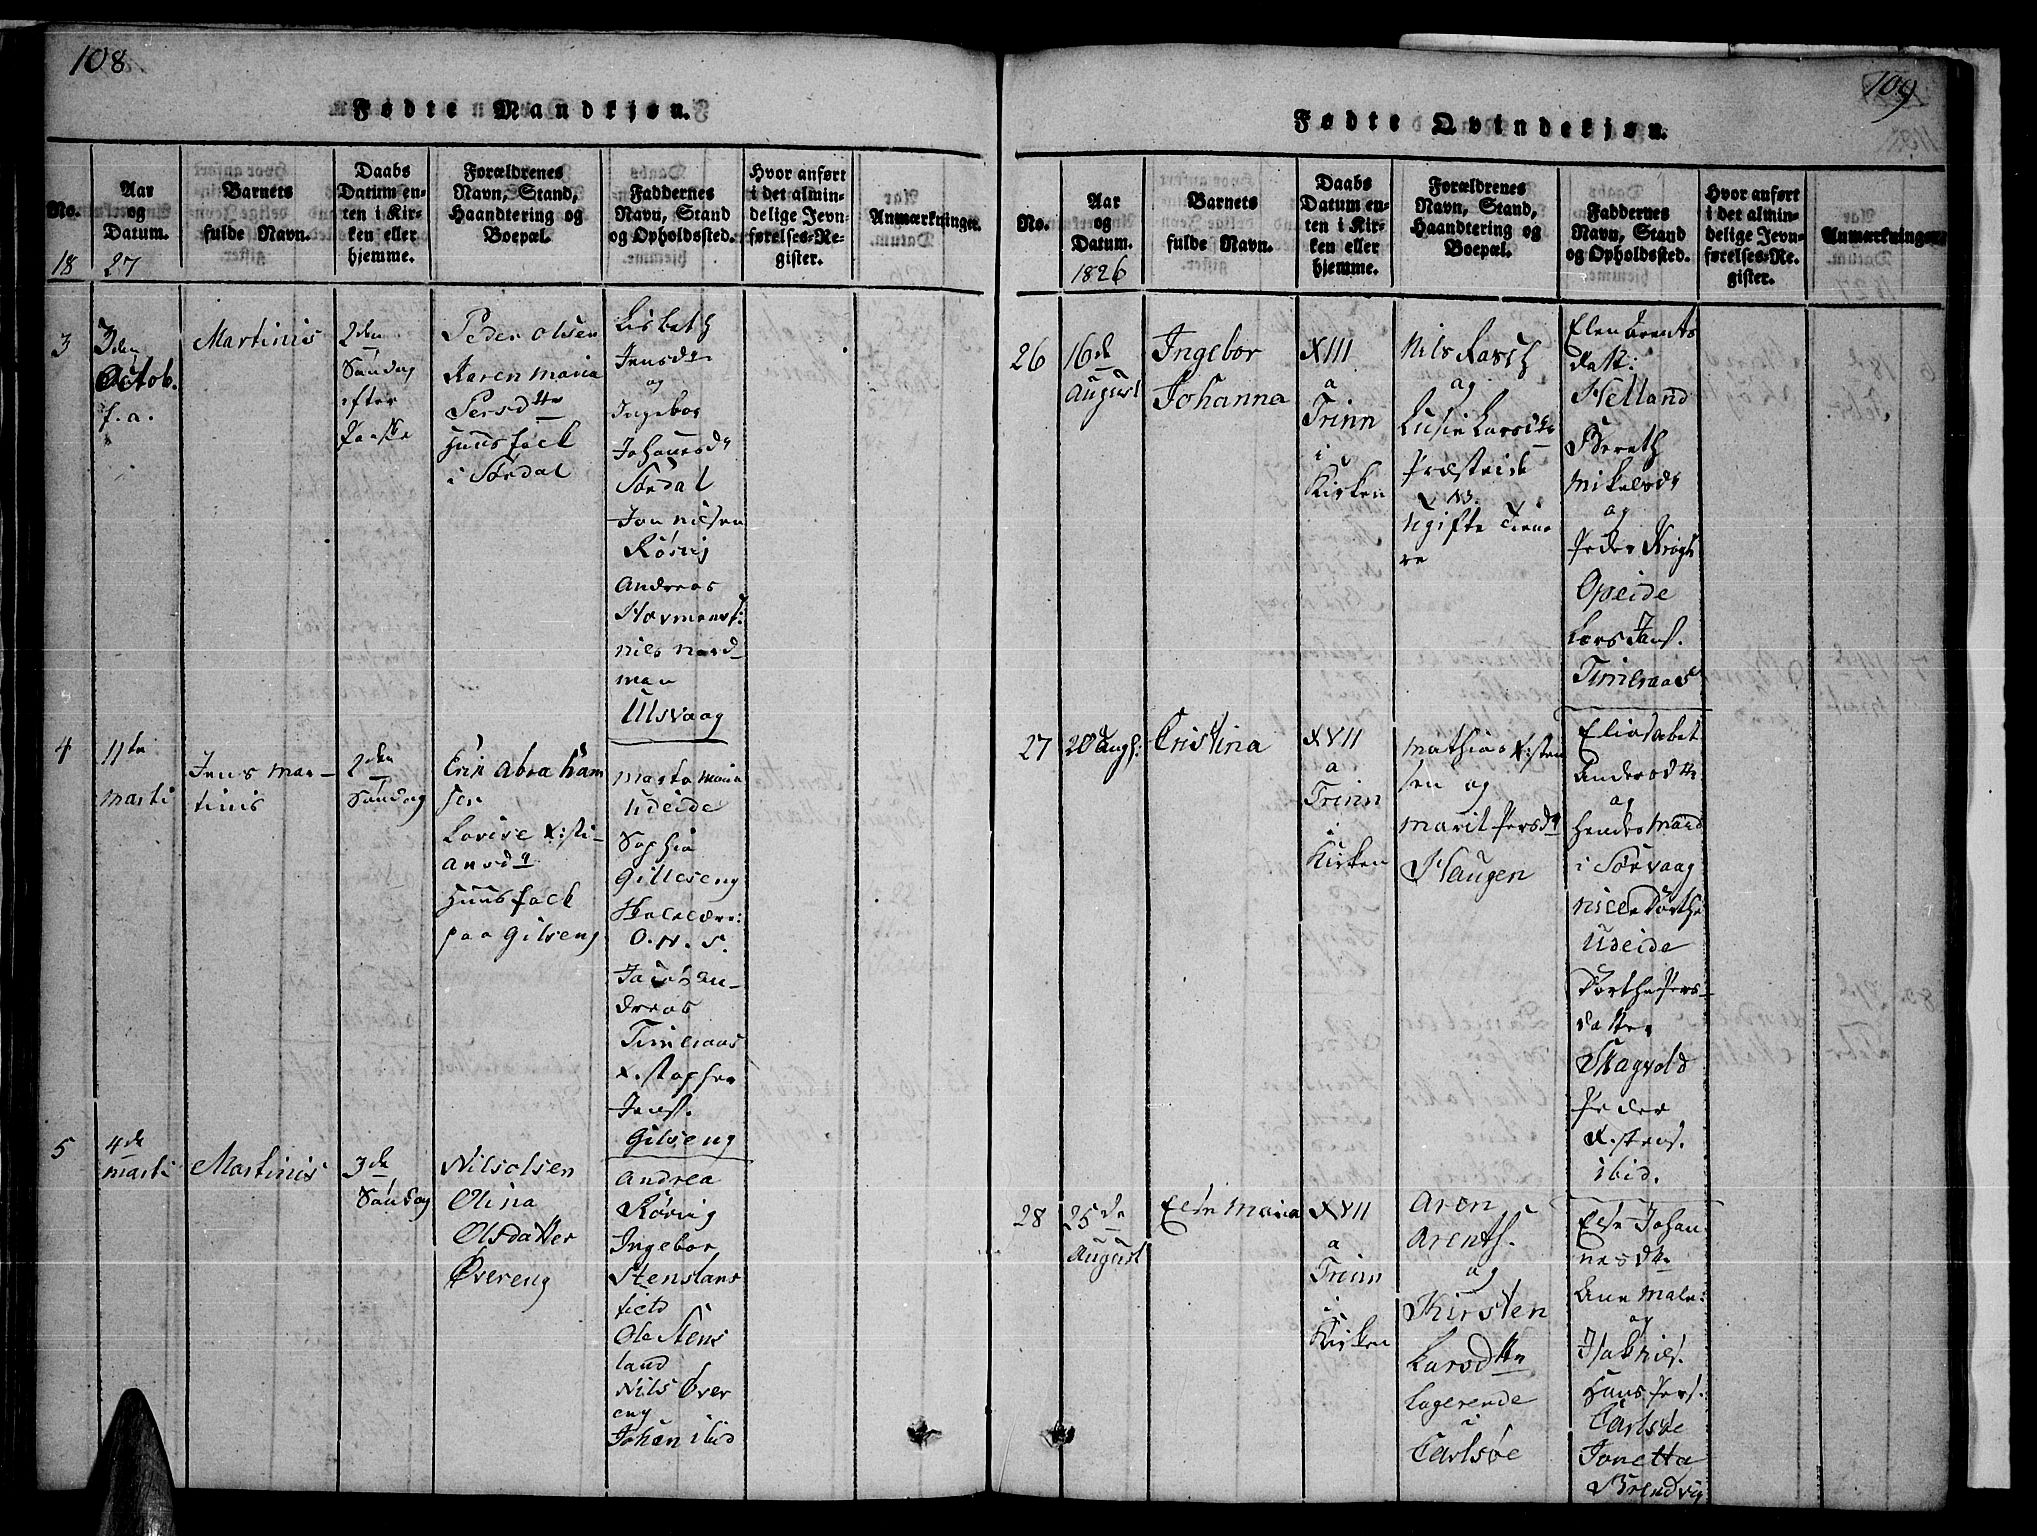 108
Fødte Mandkjøn.
No.
Aar
og
Datum.
Barnets
fulde Navn.
Daabs
Datum en-
ten i Kir-
ken eller
hjemme.
Forældrenes
Navn, Stand,
Haandtering og
Boepæl.
Faddernes
Navn, Stand
og Opholdssted.
Hvor anført
i det almin-
delige Jevn-
førelses-Re-
gister.
Anmærkninger.
18 27
3
3den
Octob.
f. a.
Martinis
2den
Søndag
efter
Paaske
Peder Olsen
Karen Maria
Persdtr
Huusfolk
i Sørdal
Lisbeth
Jensdr
og
Ingebor
Johansdr
Sørdal
Jon Nilsen
Rørvig
Andreas
Hormansf:
Nils Nord-
man
Ulsvaag
4
11te
Marti
Jens Mar-
tinis
2den
Søndag
Erik Abraham
sen
Lovise X:sti-
ansdr
Huusfolk
paa Gilseng
Marta Maria
Udeide
Sophia
Gilleseng
Skolelærr:
O. N. S.
Jacob An-
dreas
Timraas
X:stopher
Jensf.
Gilseng
5
4de
Marti
Martinis
3de
Søndag
Nils Olsen
Olina
Olsdatter
Øvereng
Andrea
Rørvig
Ingebor
Stenslans
field
Ole Stens
land
Nils Øver
eng
Johan ibid
109
Fødte Qvindekjøn.
No.
Aar
og
Datum.
1826
Barnets
fulde Navn.
Daabs
Datum en-
ten i Kir-
ken eller
hjemme.
Forældrenes
Navn, Stand,
Haandtering og
Boepæl.
Faddernes
Navn, Stand
og Opholdssted.
Hvor anført
i det almin-
delige Jevn-
førelses-Re-
gister.
Anmærkninger.
26
16de
August
Ingebor
Johanna
XIII
a
Trinn
i
Kirken
Nils Rasch
og
Lusie Larsdtr
Præsteide
NB.
Ugifte Tiene
re
Elen Arents
datt:
Helland
Bereth
Mikelsdr
og
Peder Krogh
Opeide
Lars Jansf.
Timraas
27
20 Augs:
Cristina
XVII
a
Trinn
Kirken
Mathias X:sten
sen og
Marit Persdr
Haugen
Eliasabet
Andersdtr
og
hendes Mand
i Sørvaag
Nille Dorthe
Udeide
Dorthe Pers-
datter
Skagvold
Peder
X:stensf.
ibid.
28
25de
August
Else Maria
XVII
a
Trinn
i
Kirken
Aron
Arentsf.
og
Kirsten
Larsdtr
Logerende
i
Carlsøe
Else Johan
nesdtr
Ane Male:
og
Isak Nilsf.
Hans Persf:
Carlsøe
Jonetta
Brendvig